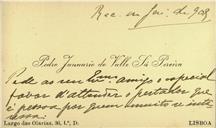 Rec. em Jan. de 908
Pedro Januario do Valle Sá Pereira
Pede ao seu Exmo. amigo o especial
favor d'attender o portador que
é pessoa por quem muito se inte-
ressa.
Largo das Olarias, 36, 1.º, D.
LISBOA